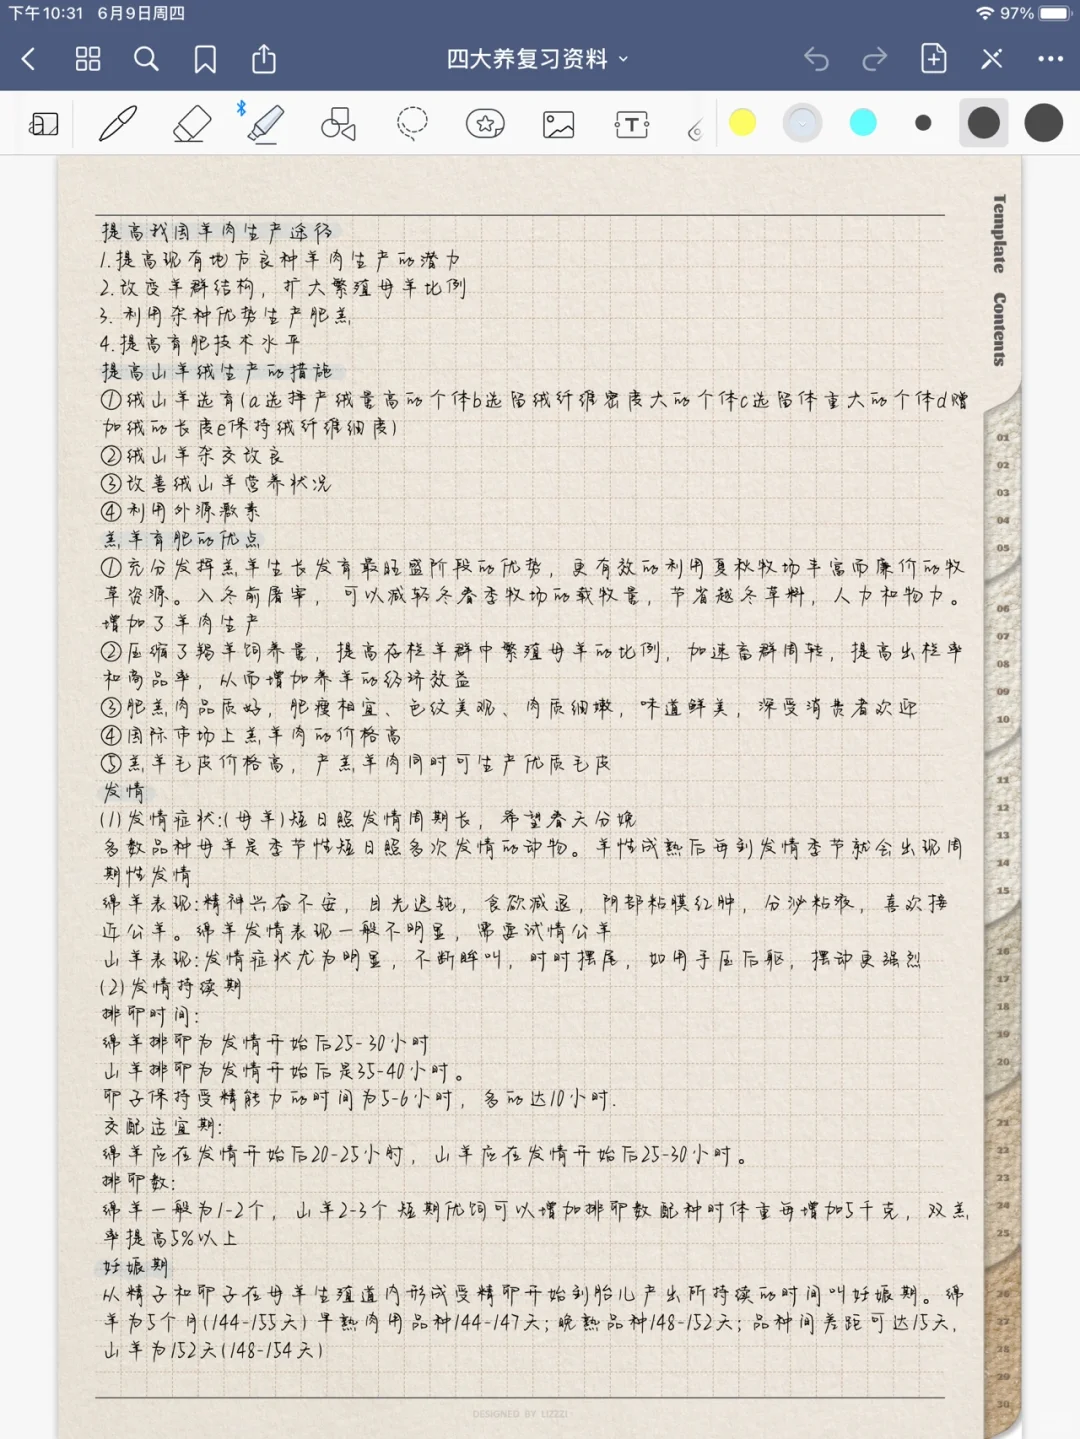 下午10:31 6月9日周四
97%
四大养复习资料
Template
Contents
提高我国羊肉生产途径
1.提高现有地方良种羊肉生产的潜力
2.改变羊群结构，扩大繁殖母羊比例
3.利用杂种优势生产肥羔
4.提高育肥技术水平
提高山羊绒生产的措施
①绒山羊选育(a选择产绒量高的个体b选留绒纤维密度大的个体c选留体重大的个体d增
加绒的长度e保持绒纤维细度)
②绒山羊杂交改良
③改善绒山羊营养状况
④利用外源激素
羔羊育肥的优点
①充分发挥羔羊生长发育最旺盛阶段的优势，更有效的利用夏秋牧场丰富而廉价的牧
草资源。入冬前屠宰，可以减轻冬春季牧场的载牧量，节省越冬草料，人力和物力。
增加了羊肉生产
②压缩了羯羊饲养量，提高存栏羊群中繁殖母羊的比例，加速畜群周转，提高出栏率
和商品率，从而增加养羊的经济效益
③肥羔肉品质好，肥瘦相宜、色纹美观、肉质细嫩，味道鲜美，深受消费者欢迎
④国际市场上羔羊肉的价格高
⑤羔羊毛皮价格高，产羔羊肉同时可生产优质毛皮
发情
(1)发情症状:(母羊)短日照发情周期长，希望春天分娩
多数品种母羊是季节性短日照多次发情的动物。羊性成熟后每到发情季节就会出现周
期性发情
绵羊表现:精神兴奋不安，目光迟钝，食欲减退，阴部粘膜红肿，分泌粘液，喜欢接
近公羊。绵羊发情表现一般不明显，需要试情公羊
山羊表现:发情症状尤为明显，不断哞叫，时时摆尾，如用手压后躯，摆动更强烈
(2)发情持续期
排卵时间:
绵羊排卵为发情开始后25-30小时
山羊排卵为发情开始后是35-40小时。
卵子保持受精能力的时间为5-6小时，多的达10小时.
交配适宜期:
绵羊应在发情开始后20-25小时，山羊应在发情开始后25-30小时。
排卵数:
绵羊一般为1-2个，山羊2-3个 短期优饲可以增加排卵数 配种时体重每增加5千克，双羔
率提高5%以上
妊娠期
从精子和卵子在母羊生殖道内形成受精卵开始到胎儿产出所持续的时间叫妊娠期。绵
羊为5个月(144-155天)早熟肉用品种144-147天;晚熟品种148-152天;品种间差距可达15天,
山羊为152天(148-154天)
01
02
03
04
05
06
07
08
09
10
11
12
13
14
15
16
17
18
19
20
21
22
23
24
25
26
27
28
29
30
DESIGNED BY LIZZZI